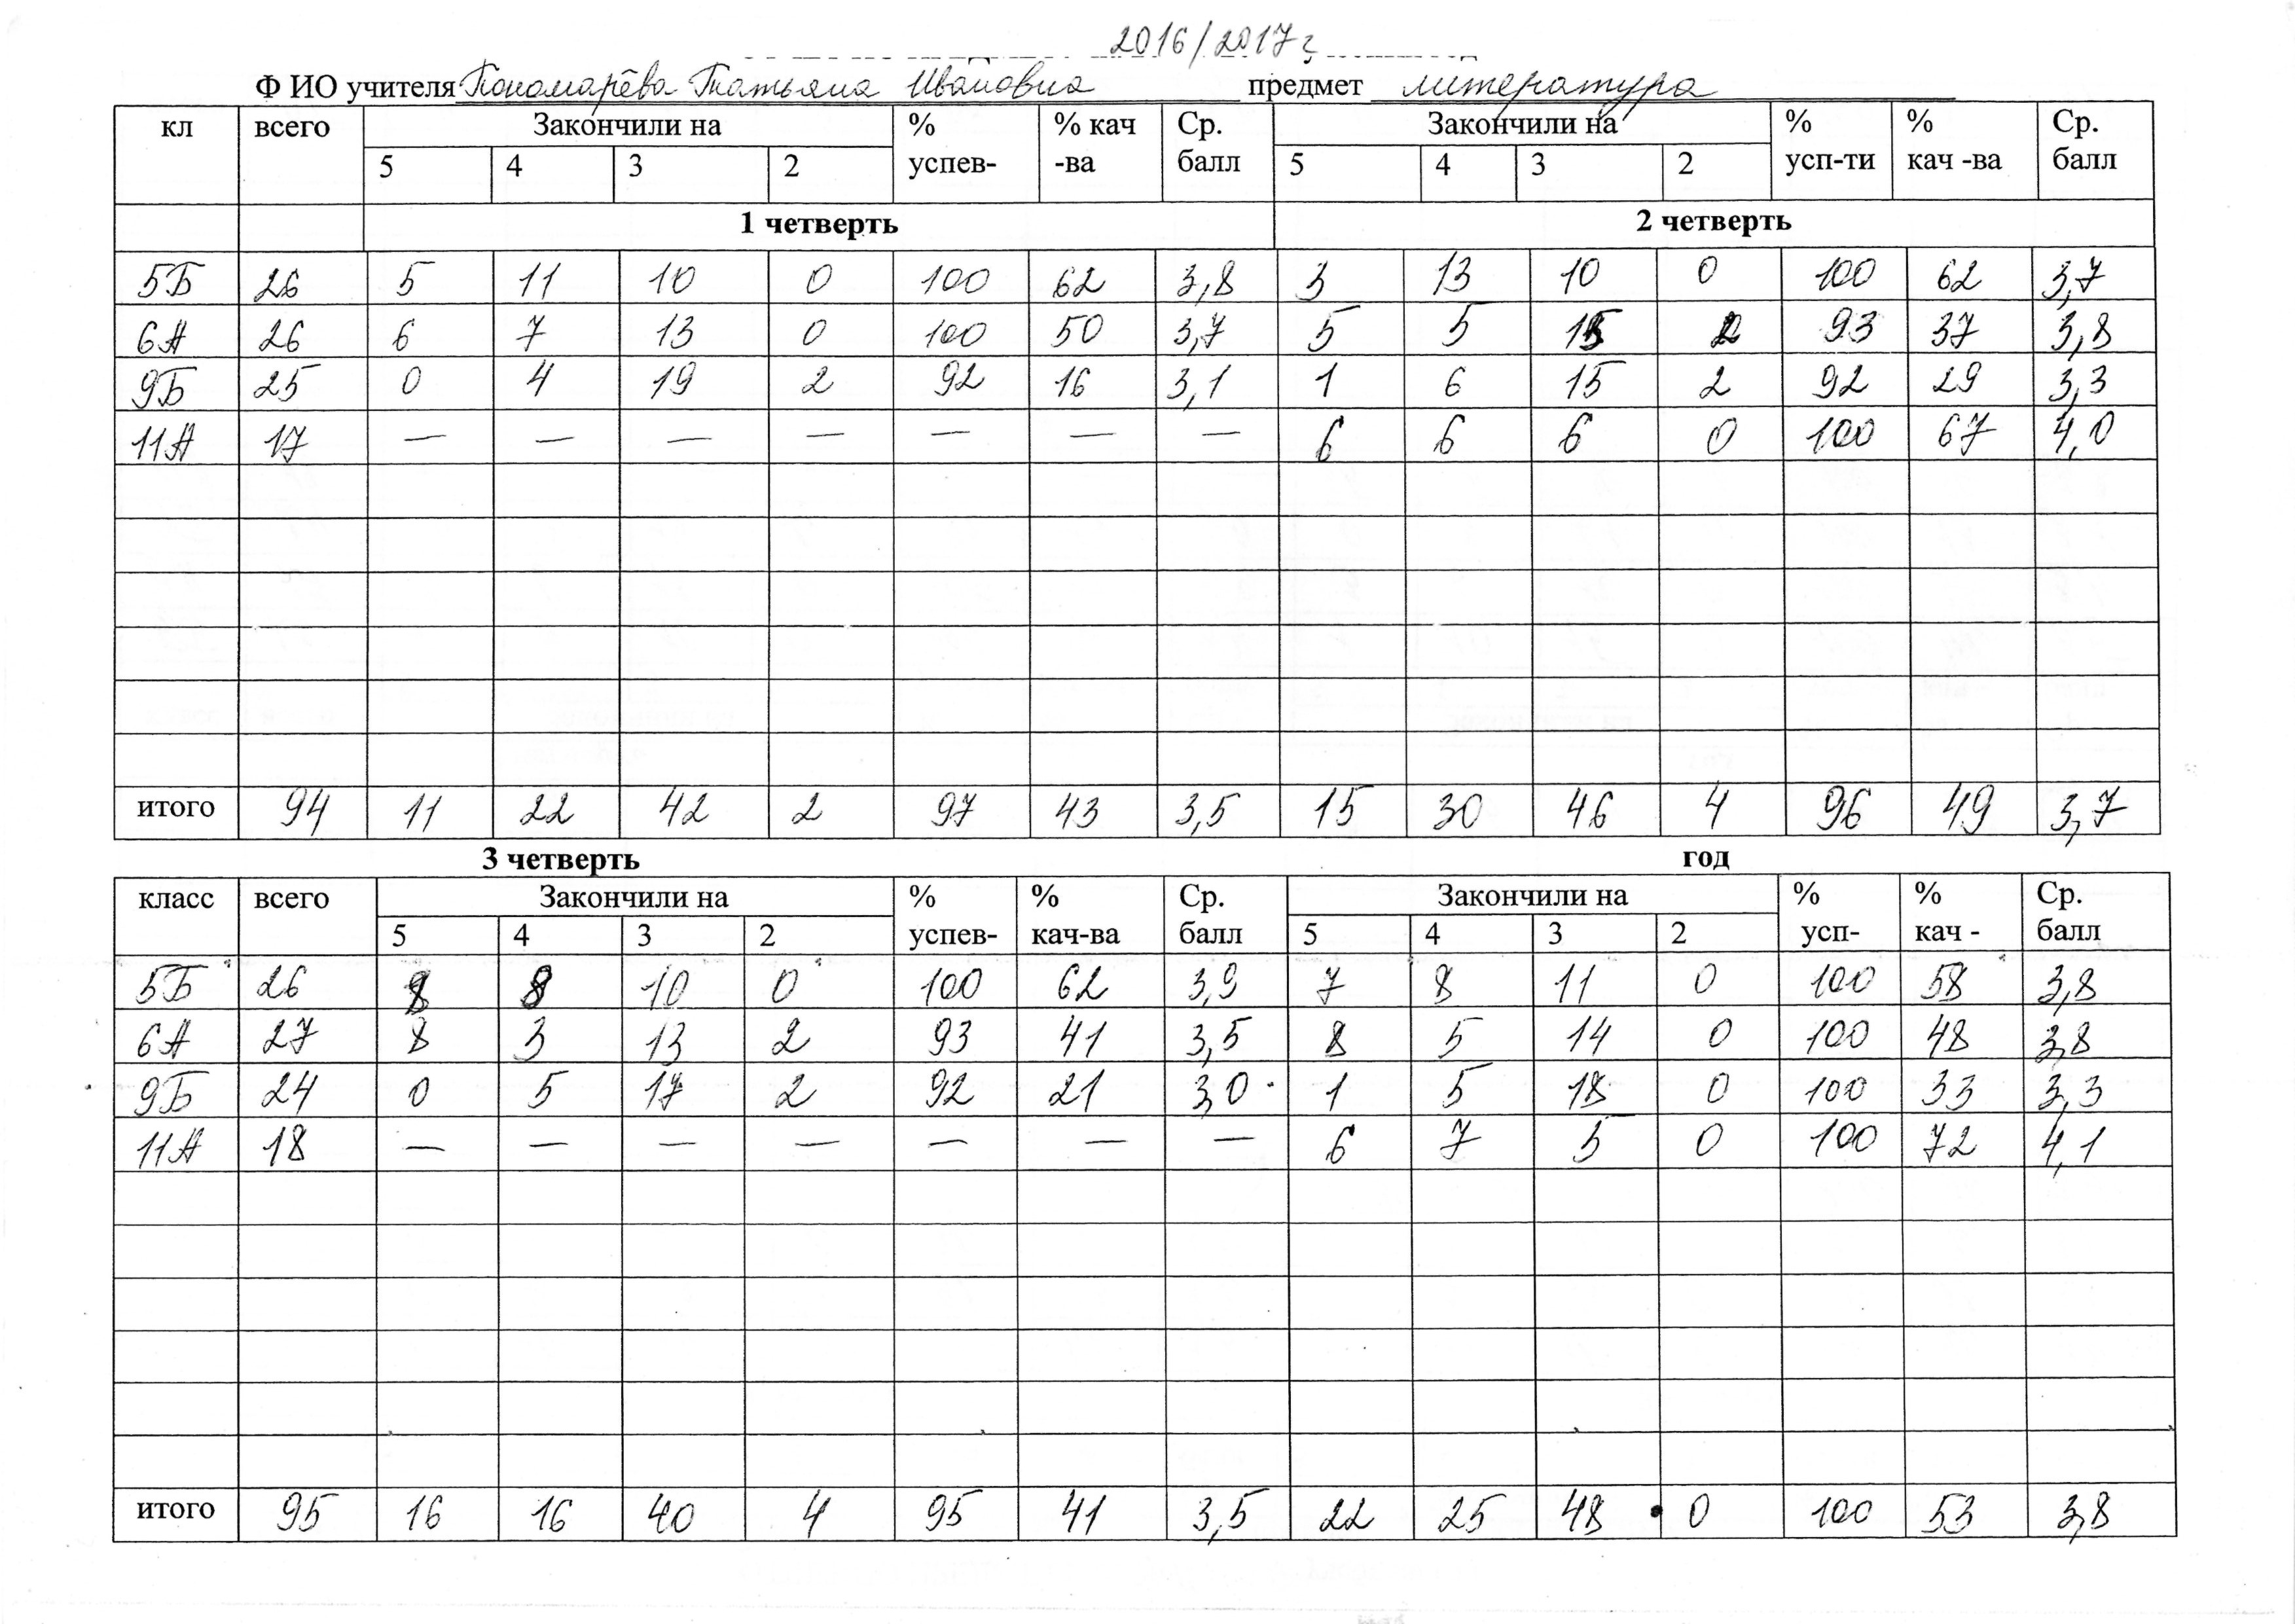 2016/2017 г
Ф ИО учителя Пономарёва Татьяна Ивановна предмет литература
кл всего Закончили на % % кач Ср. Закончили на % % Ср.
5 4 3 2 успев- -ва балл 5 4 3 2 усп-ти кач -ва балл
1 четверть 2 четверть
5Б 26 5 11 10 0 100 62 3,8 3 13 10 0 100 62 3,7
6А 26 6 7 13 0 100 50 3,7 5 5 15 2 93 37 3,8
9Б 25 0 4 19 2 92 16 3,1 1 6 15 2 92 29 3,3
11А 17 — — — — — — — 6 6 6 0 100 67 4,0
итого 94 11 22 42 2 97 43 3,5 15 30 46 4 96 49 3,7
3 четверть год
класс всего Закончили на % % Ср. Закончили на % % Ср.
5 4 3 2 успев- кач-ва балл 5 4 3 2 усп- кач - балл
5Б 26 8 8 10 0 100 62 3,9 7 8 11 0 100 58 3,8
6А 27 8 3 13 2 93 41 3,5 8 5 14 0 100 48 3,8
9Б 24 0 5 17 2 92 21 3,0 1 5 18 0 100 33 3,3
11А 18 — — — — — — — 6 7 5 0 100 72 4,1
итого 95 16 16 40 4 95 41 3,5 22 25 48 0 100 53 3,8